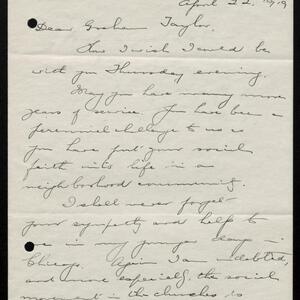 April 22, 1919
Dear Graham Taylor,
How I wish I could be
with you Thursday evening.
May you have many more
years of service. You have been a
perennial challenge to us as
you have put your social
faith into life in a
neighborhood community.
I shall never forget
your sympathy and help to
me in my younger days in
Chicago. Again I am indebted,
and more especially the social
movement in the churches is